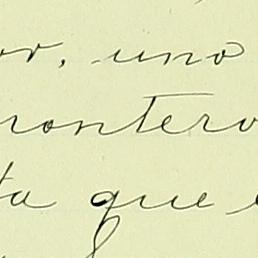 or, uno
rontero
ta que